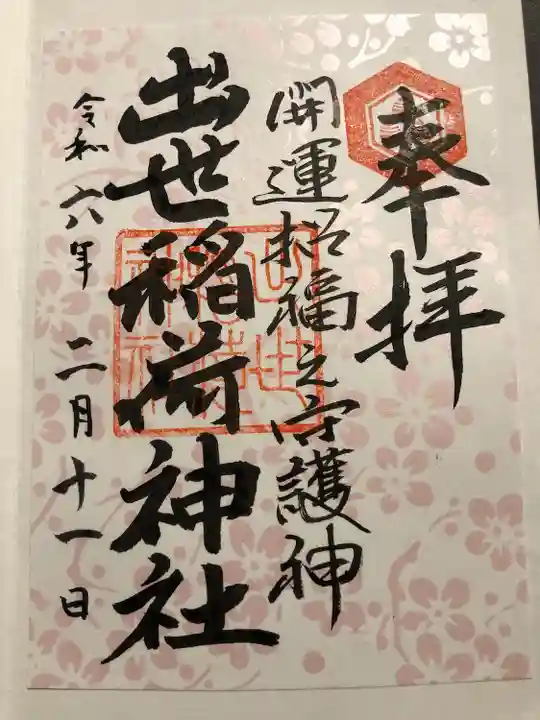 奉拝
開運招福之守護神
出世稲荷神社
令和六年二月十一日